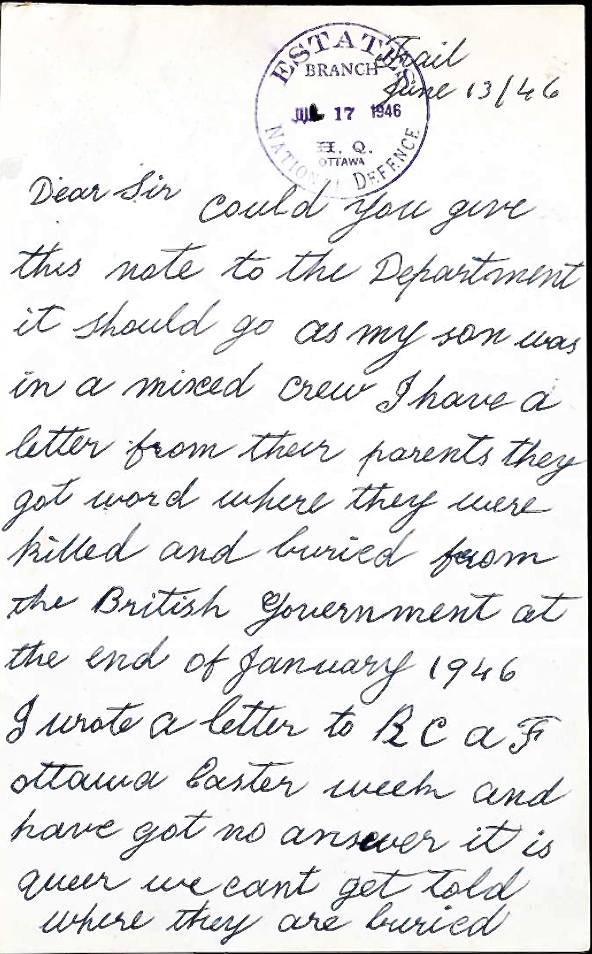 Trail
June 13/46
ESTATES
BRANCH
JUL 17 1946
H. Q.
OTTAWA
NATIONAL DEFENCE
Dear Sir could you give
this note to the Department
it should go as my son was
in a mixed crew I have a
letter from their parents they
got word where they were
killed and buried from
the British Government at
the end of January 1946
I wrote a letter to R C a F
ottawa Easter week and
have got no answer it is
queer we cant get told
where they are buried